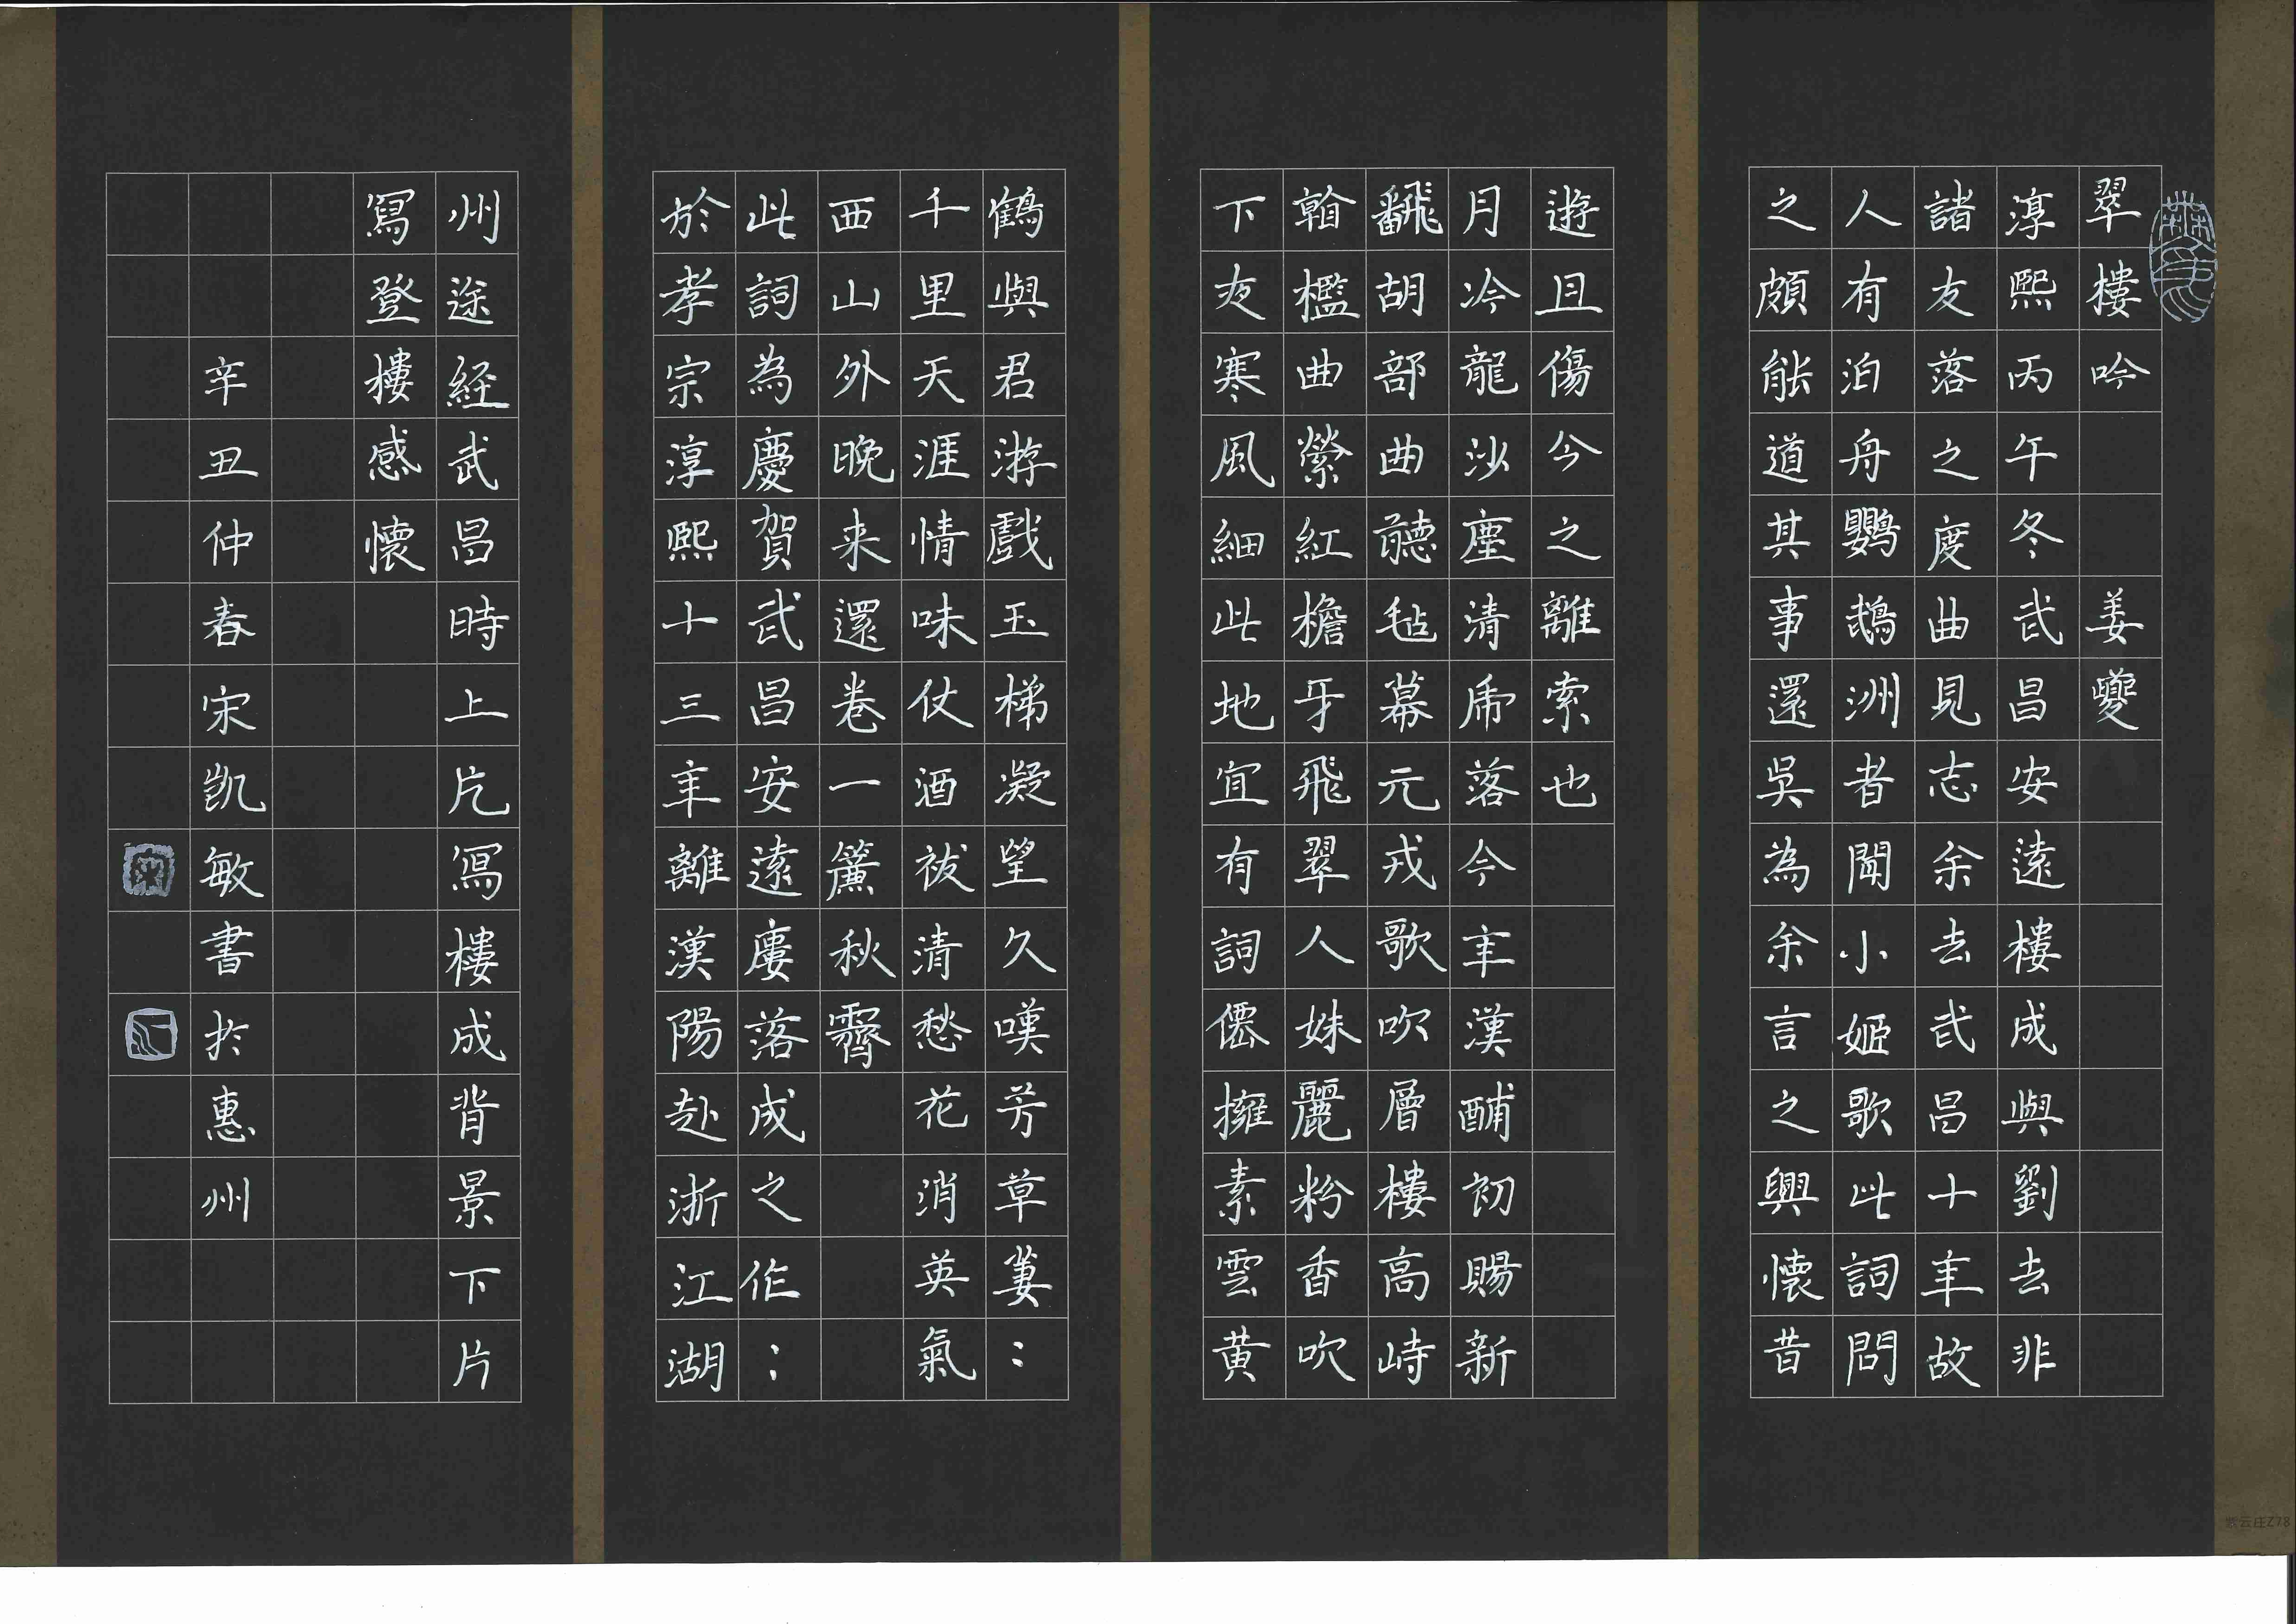 翠樓吟 姜夔
淳熙丙午冬武昌安遠樓成與劉去非
諸友落之度曲見志余去武昌十年故
人有泊舟鸚鵡洲者聞小姬歌此詞問
之頗能道其事還吳為余言之興懷昔
遊且傷今之離索也
月冷龍沙塵清虎落今年漢酺初賜新
翻胡部曲聽氈幕元戎歌吹層樓高峙
看檻曲縈紅檐牙飛翠人姝麗粉香吹
下夜寒風細此地宜有詞僊擁素雲黄
鶴與君游戲玉梯凝望久嘆芳草萋:
千里天涯情味仗酒祓清愁花消英氣
西山外晚来還卷一簾秋霽
此詞為慶賀武昌安遠廔落成之作:
於孝宗淳熙十三年離漢陽赴浙江湖
州途経武昌時上片寫樓成背景下片
寫登樓感懷
辛丑仲春宋凱敏書於惠州